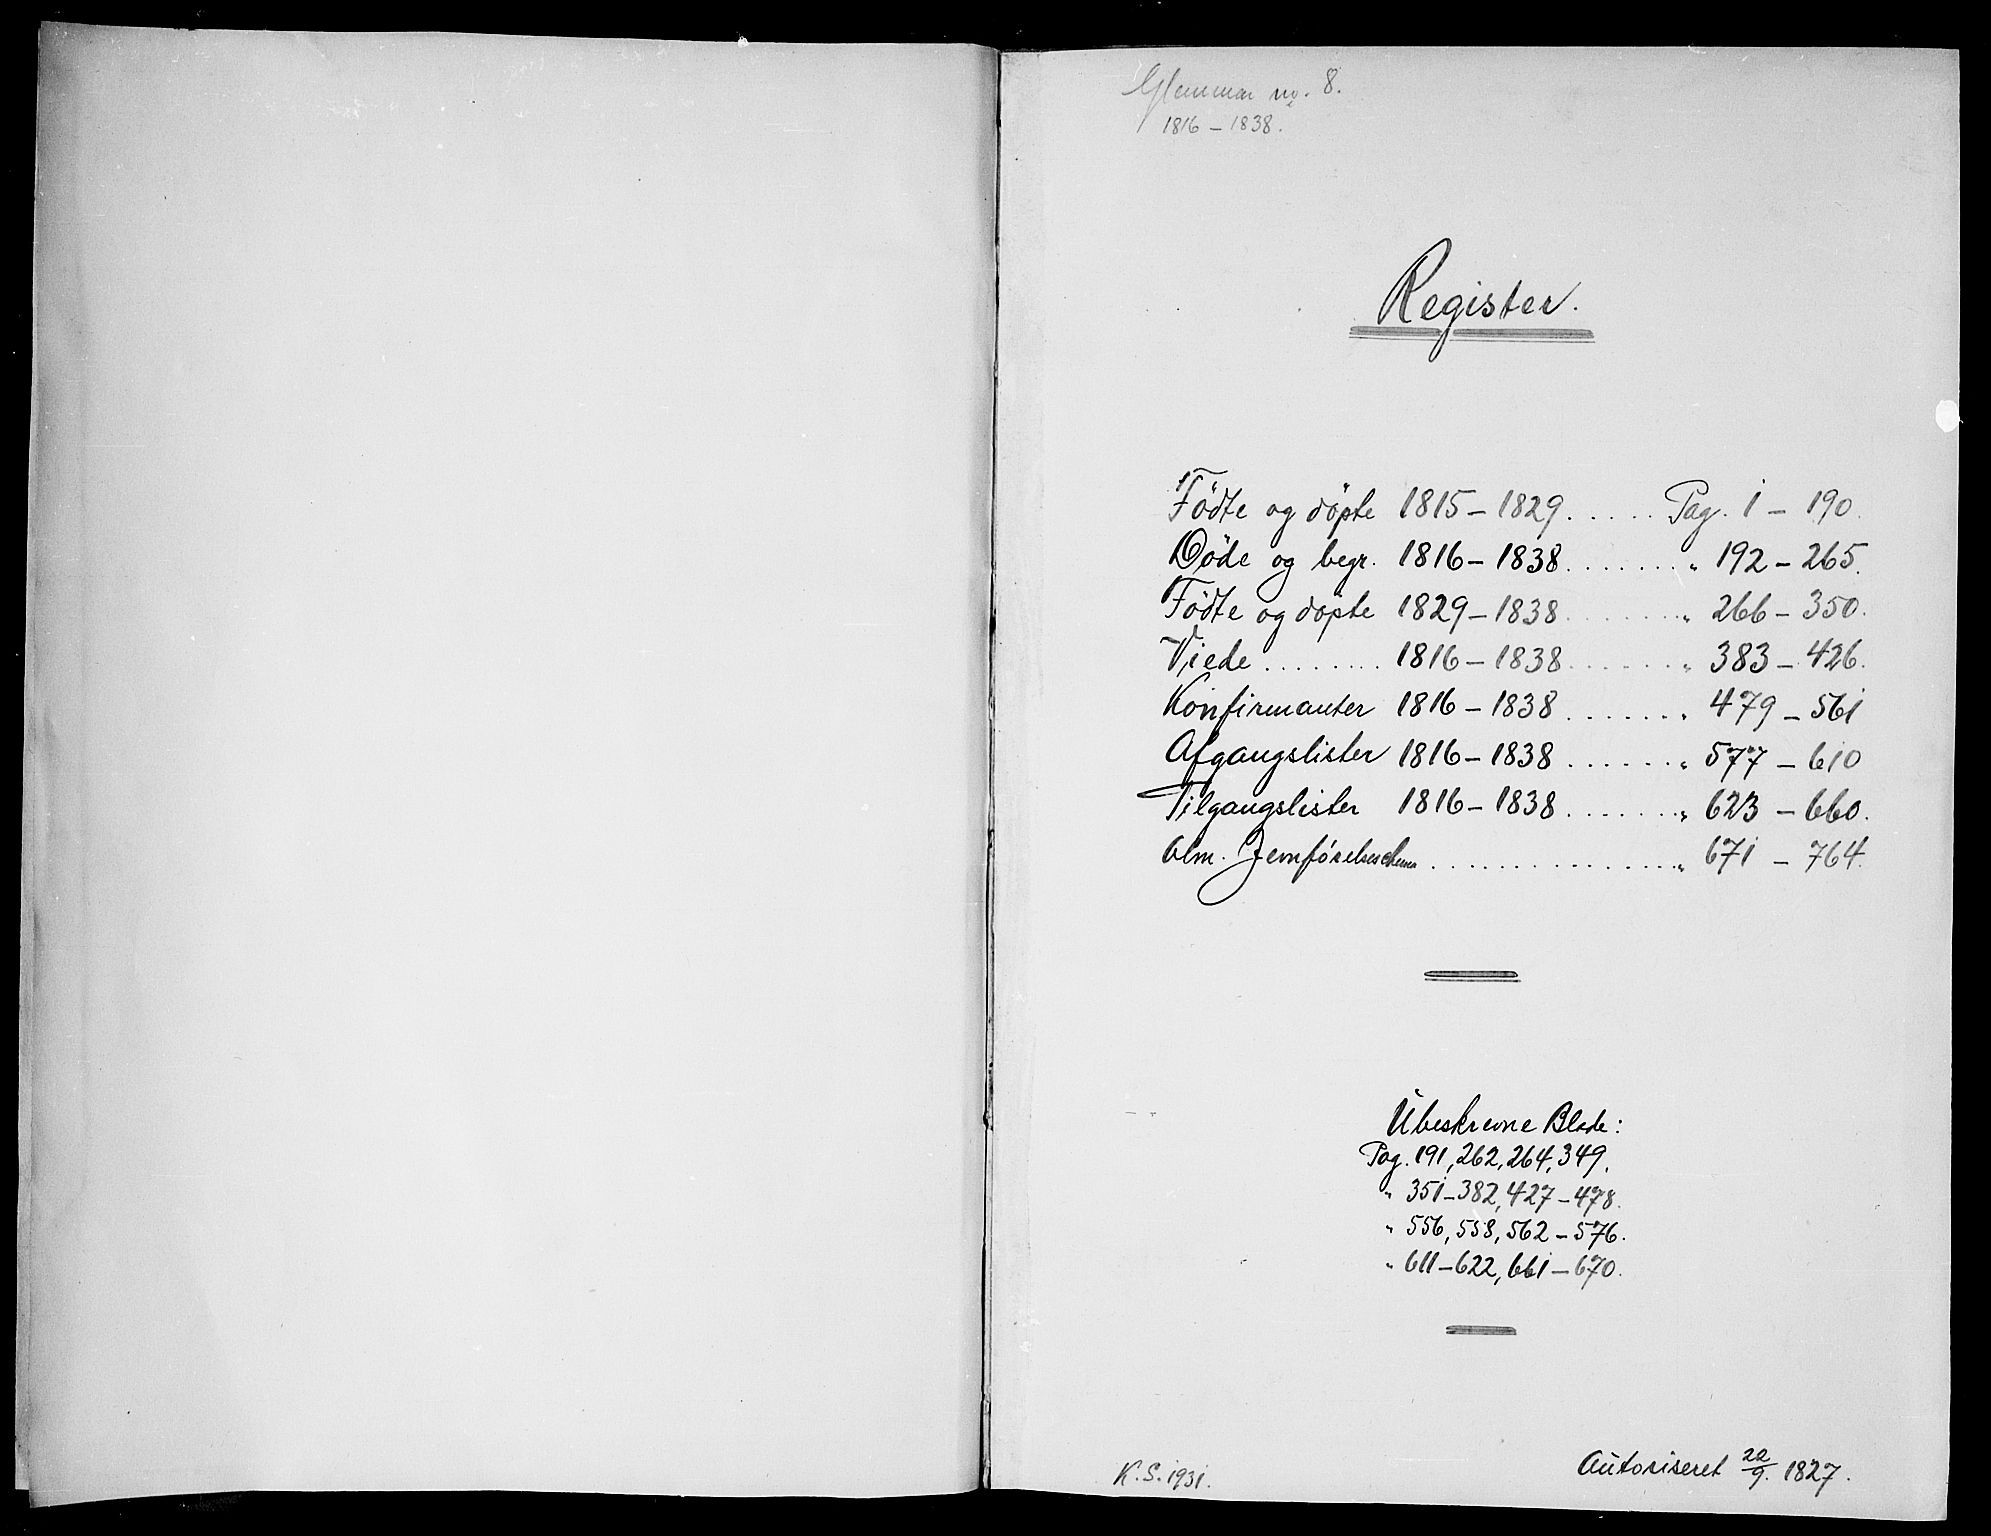 Glemmen no. 8.
1816 – 1838.
Register.
Födte og döpte 1815 – 1829 . . . . . Pag. 1 – 190.
Döde og begr. 1816 – 1838 . . . . . . . „ 192 – 265.
Födte og döpte 1829 – 1838 . . . . . . . „ 266 – 350.
Viede . . . . . . . . 1816 – 1838 . . . . . . . „ 383 – 426.
Konfirmanter 1816 – 1838 . . . . . . . „ 479 – 561
Afgangslister 1816 – 1838 . . . . . . „ 577 – 610
Tilgangslister 1816 – 1838 . . . . . . . „ 623 – 660.
Alm. Jemförelseschema . . . . . . . . . . . . . . . „ 671 – 764.
Übeskrevne Blade:
Pag. 191, 262, 264, 349.
„ 351 – 382, 427 – 478.
„ 556, 558, 562 – 576.
„ 611 – 622, 661 – 670.
K. S. 1931.
Autoriseret 22/9. 1827.